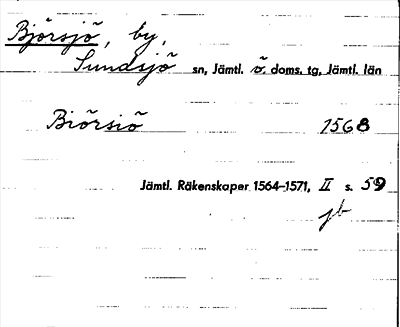 Björsjö, by,
Sundsjö sn, Jämtl. ö. doms. tg, Jämtl. län
Biörsiö 1568
Jämtl. Räkenskaper 1564–1571, II s. 59
jb